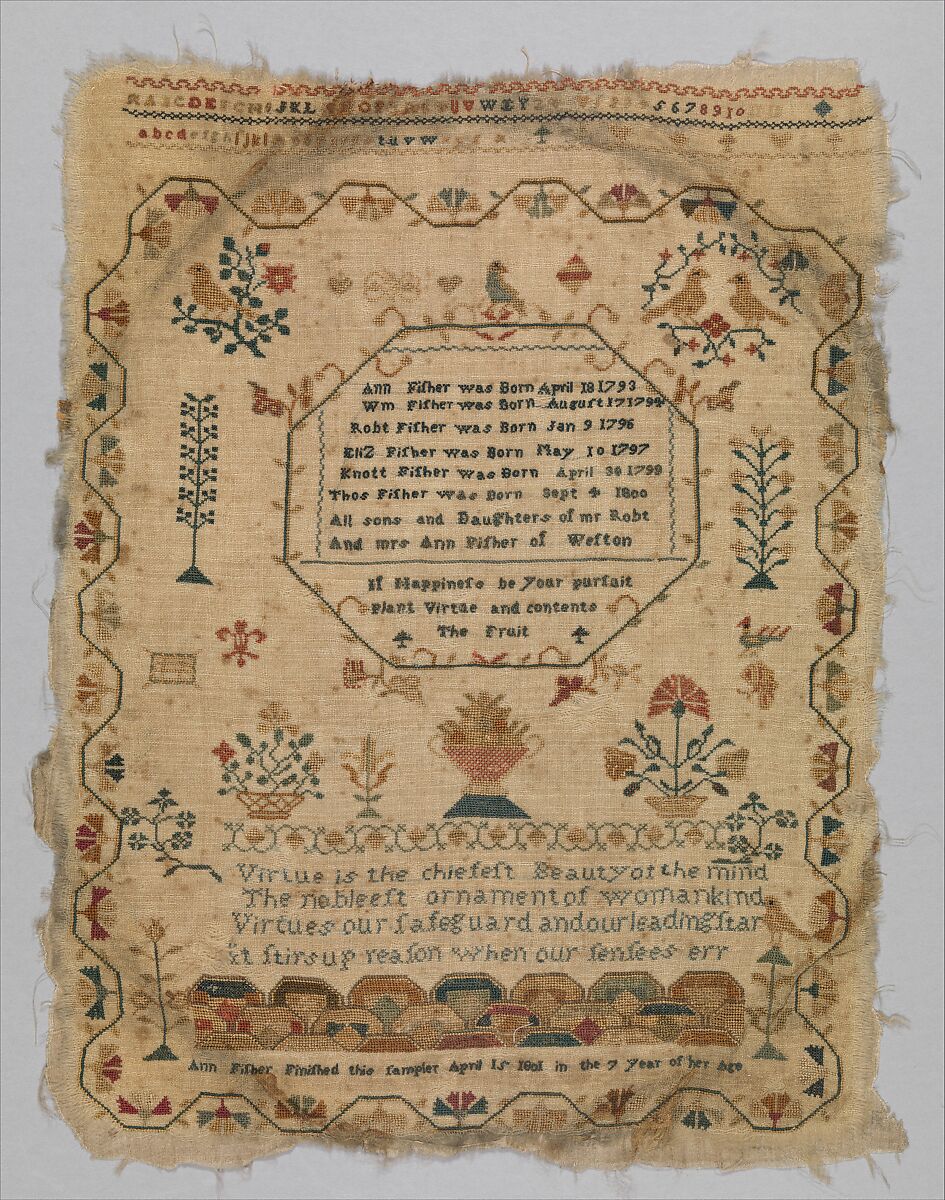 A B C D E F G H I J K L O P U V W E Y Z 5 6 7 8 9 10
a b c d e f g h i j k l t u v w
Ann Fiſher was Born April 18 1793
Wm Fiſher was Born August 17 1794
Robt Fiſher was Born Jan 9 1796
EliZ Fiſher was Born May 10 1797
Knott Fiſher was Born April 30 1799
Thos Fiſher was Born Sept 4 1800
All sons and Daughters of mr Robt
And mrs Ann Fiſher of Weſton
If Happineſs be your purſuit
Plant Virtue and contents
The Fruit
Virtue is the chiefeſt Beauty of the mind
The nobleeſt ornament of womankind
Virtues our ſafeguard and our leading ſtar
t ſtirs up reaſon when our ſenſees err
Ann Fiſher Finiſhed this ſampler April 15 1801 in the 7 year of her Age